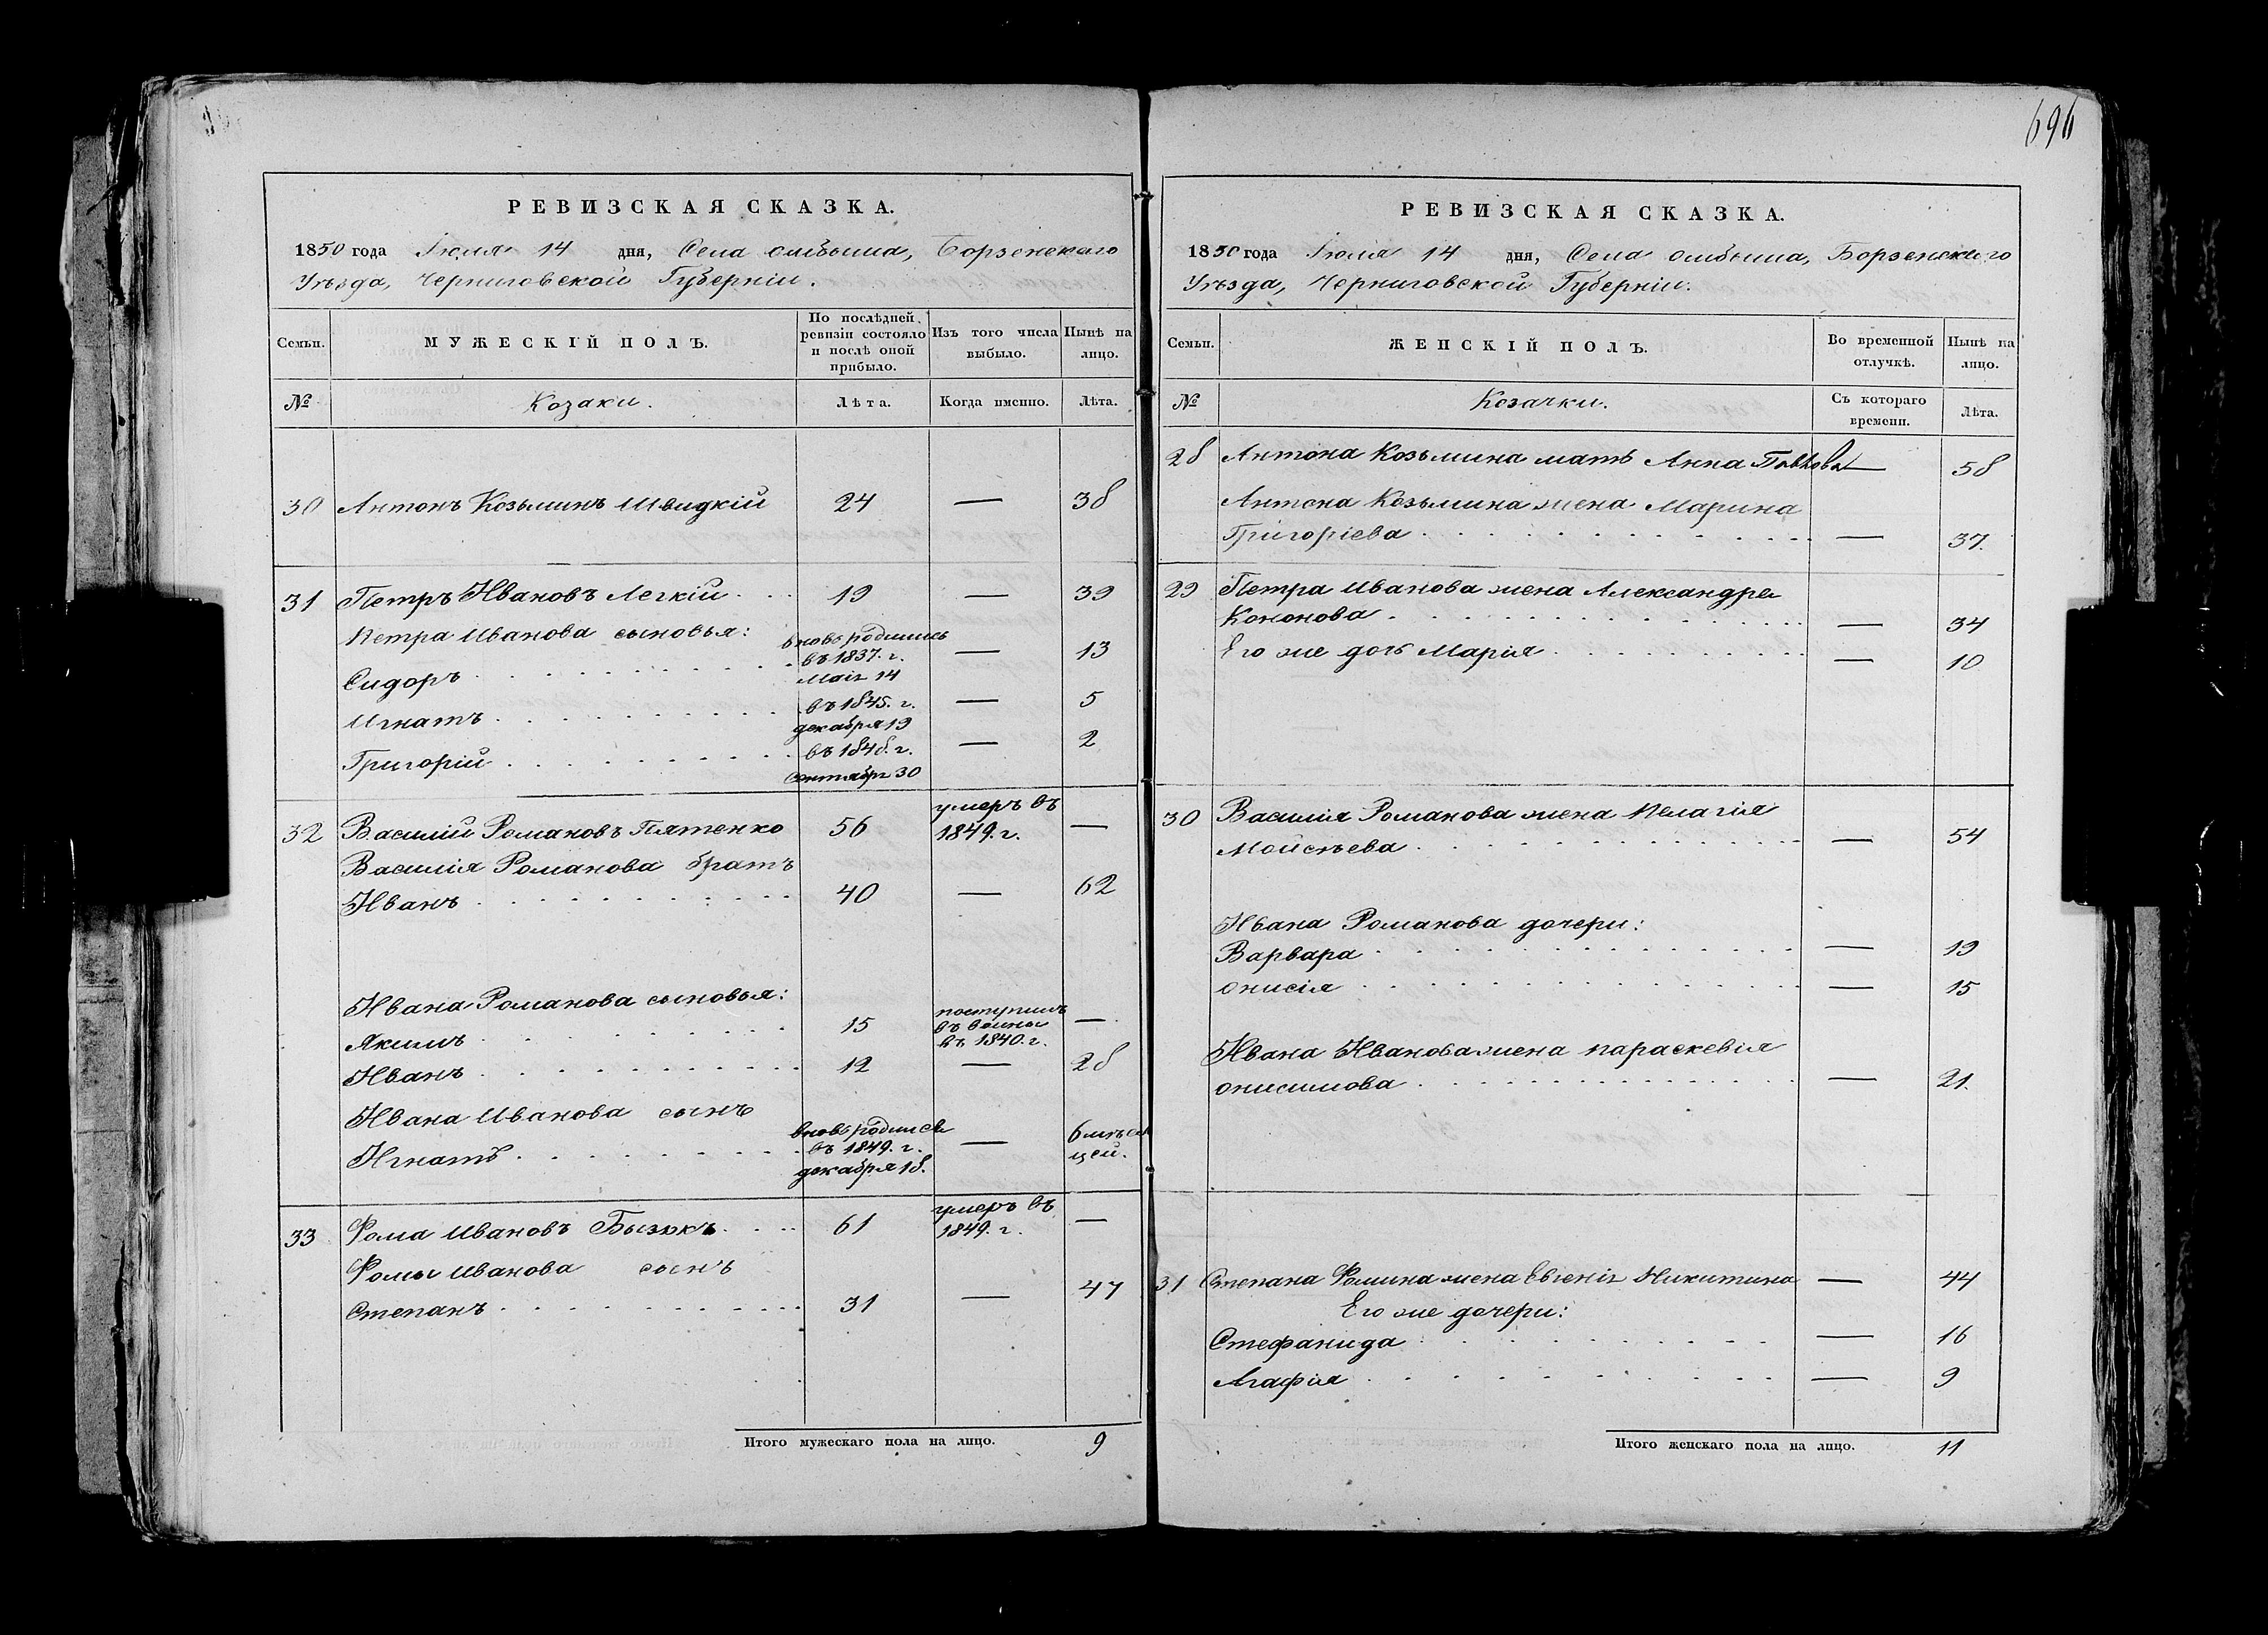 696
РЕВИЗСКАЯ СКАЗКА.
1850 года Іюля 14 дня, Села Омбыша, Борзенскаго
Уѣзда, Черниговской Губерніи.
Семьи.
МУЖЕСКІЙ ПОЛЪ.
По послѣдней
ревизіи состояло
и послѣ оной
прибыло.
Изъ того числа
выбыло.
Нынѣ на
лицо.
№
Козаки.
Лѣта.
Когда именно.
Лѣта.
30 Антонъ Козьминъ Швидкій 24 — 38
31 Петръ Ивановъ Легкій 19 — 39
Петра Иванова сыновья:
вновь родились
Сидоръ въ 1837. г. — 13
Маія 14
Игнатъ въ 1845. г. — 5
декабря 19
Григорій въ 1848. г. — 2
Сентября 30
32 Василій Романовъ Пятенко 56 умеръ въ 1849. г. —
Василія Романова братъ
Иванъ 40 — 62
Ивана Романова сыновья:
Якимъ 15 поступилъ въ воины въ 1840. г. —
Иванъ 12 — 28
Ивана Иванова сынъ
Игнатъ вновь родился въ 1849. г. декабря 18. — 6 мѣся
цей.
33 Фома Ивановъ Бызюкъ 61 умеръ въ 1849. г. —
Фомы Иванова сынъ
Степанъ 31 — 47
Итого мужескаго пола на лицо. 9
РЕВИЗСКАЯ СКАЗКА.
1850 года Іюля 14 дня, Села Омбыша, Борзенскаго
Уѣзда, Черниговской Губерніи.
Семьи.
ЖЕНСКІЙ ПОЛЪ.
Во временной
отлучкѣ.
Нынѣ на
лицо.
№
Козачки.
Съ котораго
времени.
Лѣта.
28 Антона Козьмина мать Анна Павлова — 58
Антона Козьмина жена Марина
Григоріева — 37.
29 Петра Иванова жена Александра
Кононова — 34
Его же дочь Марія — 10
30 Василія Романова жена Пелагія
Мойсѣева — 54
Ивана Романова дочери:
Варвара — 19
Онисія — 15
Ивана Иванова жена Параскевія
Онисимова — 21.
31 Степана Фомина жена Евгенія Никитина — 44
Его же дочери:
Стефанида — 16
Агафія — 9
Итого женскаго пола на лицо. 11